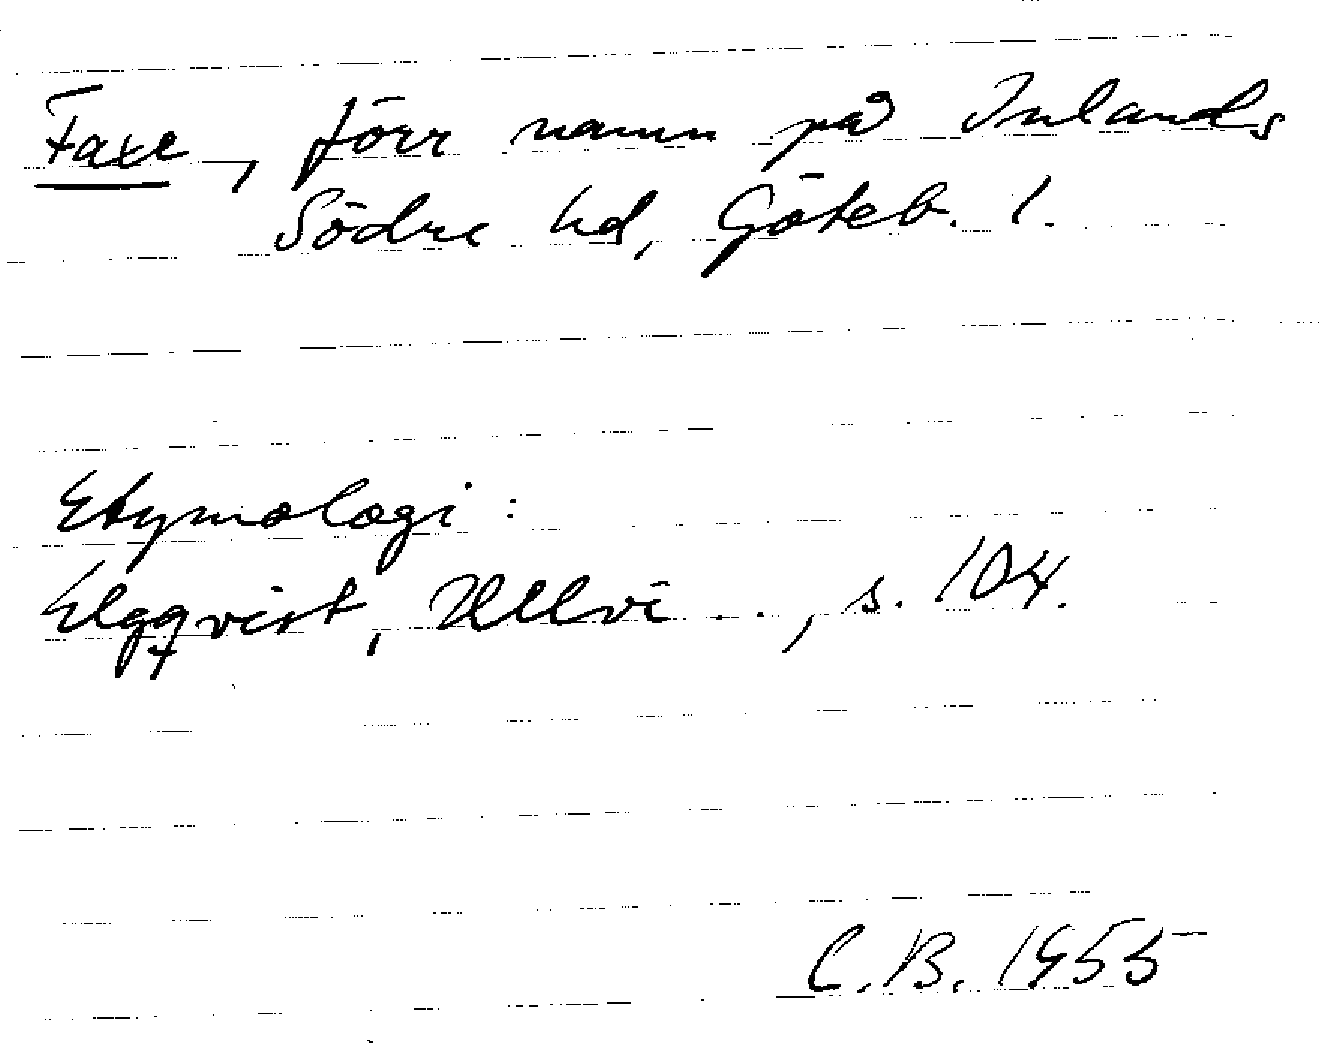 Faxe, förr namn på Inlands
Södra hd, Göteb. l.
Etymologi:
Elgqvist, Ullvi..., s. 104.
C.B. 1955